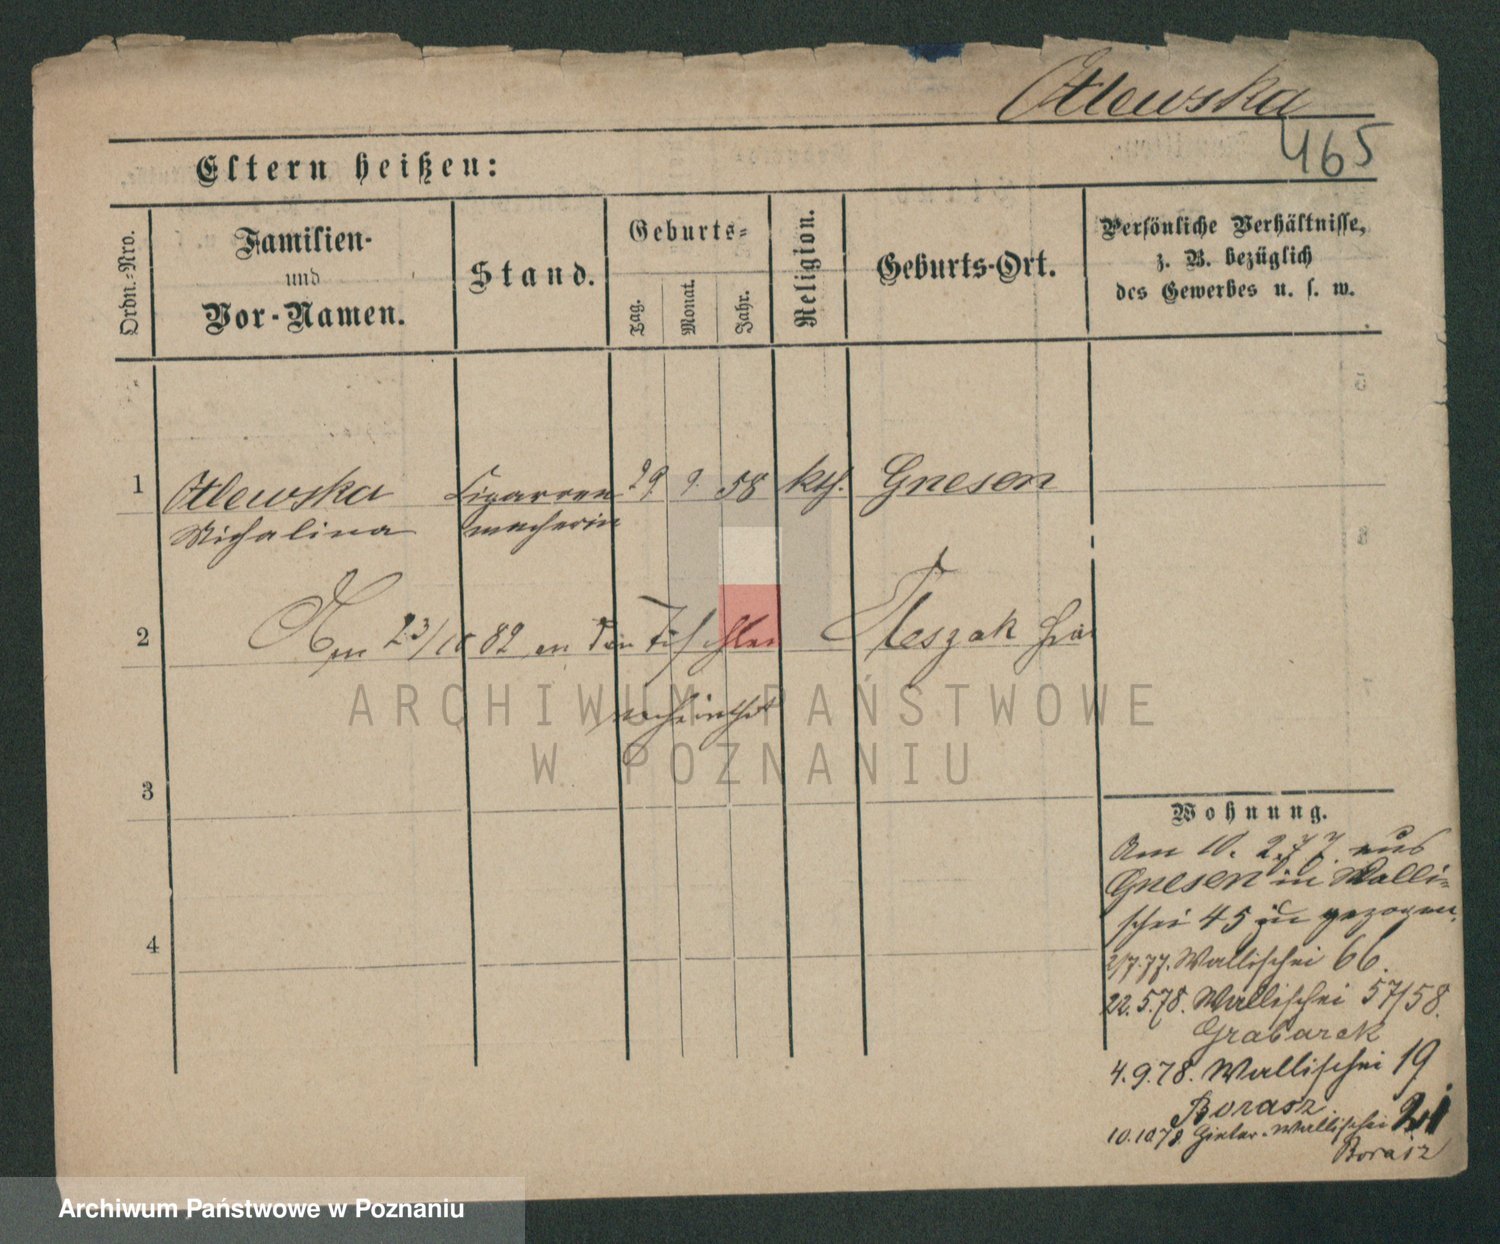 Otlewska
465
Eltern heißen:
Ordn.-Nro.
Familien-
und
Vor-Namen.
Stand.
Geburts-
Tag.
Monat.
Jahr.
Religion.
Geburts-Ort.
Persönliche Verhältnisse,
z. B. bezüglich
des Gewerbes u. s. w.
1 Otlewska Cigarren 29 9. 58 kth. Gnesen
Michalina macherin
2 Am 23/10 82 an den Tischler Pleszak hier
verheirathet
3
4
Wohnung.
Am 10. 2.77. aus
Gnesen in Walli-
schei 45 zu gezogen.
2/7.77. Wallischei 66.
22.5.78. Wallischei 57/58.
Grabarek
4.9.78. Wallischei 19
Borasz
10.1078. Hinter-Wallischei 21
Borasz
ARCHIWUM PAŃSTWOWE
W POZNANIU
Archiwum Państwowe w Poznaniu